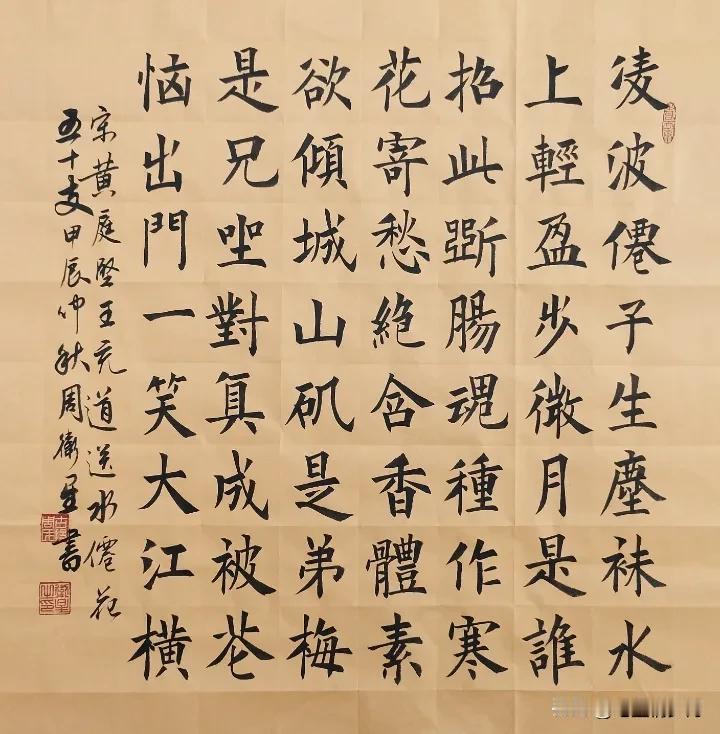 凌波僊子生塵袜水
上輕盈步微月是誰
招此斷腸魂種作寒
花寄愁絶含香體素
欲傾城山矾是弟梅
是兄坐對真成被花
恼出門一笑大江橫
宋黄庭坚王充道送水僊花
五十支甲辰仲秋周衛星書